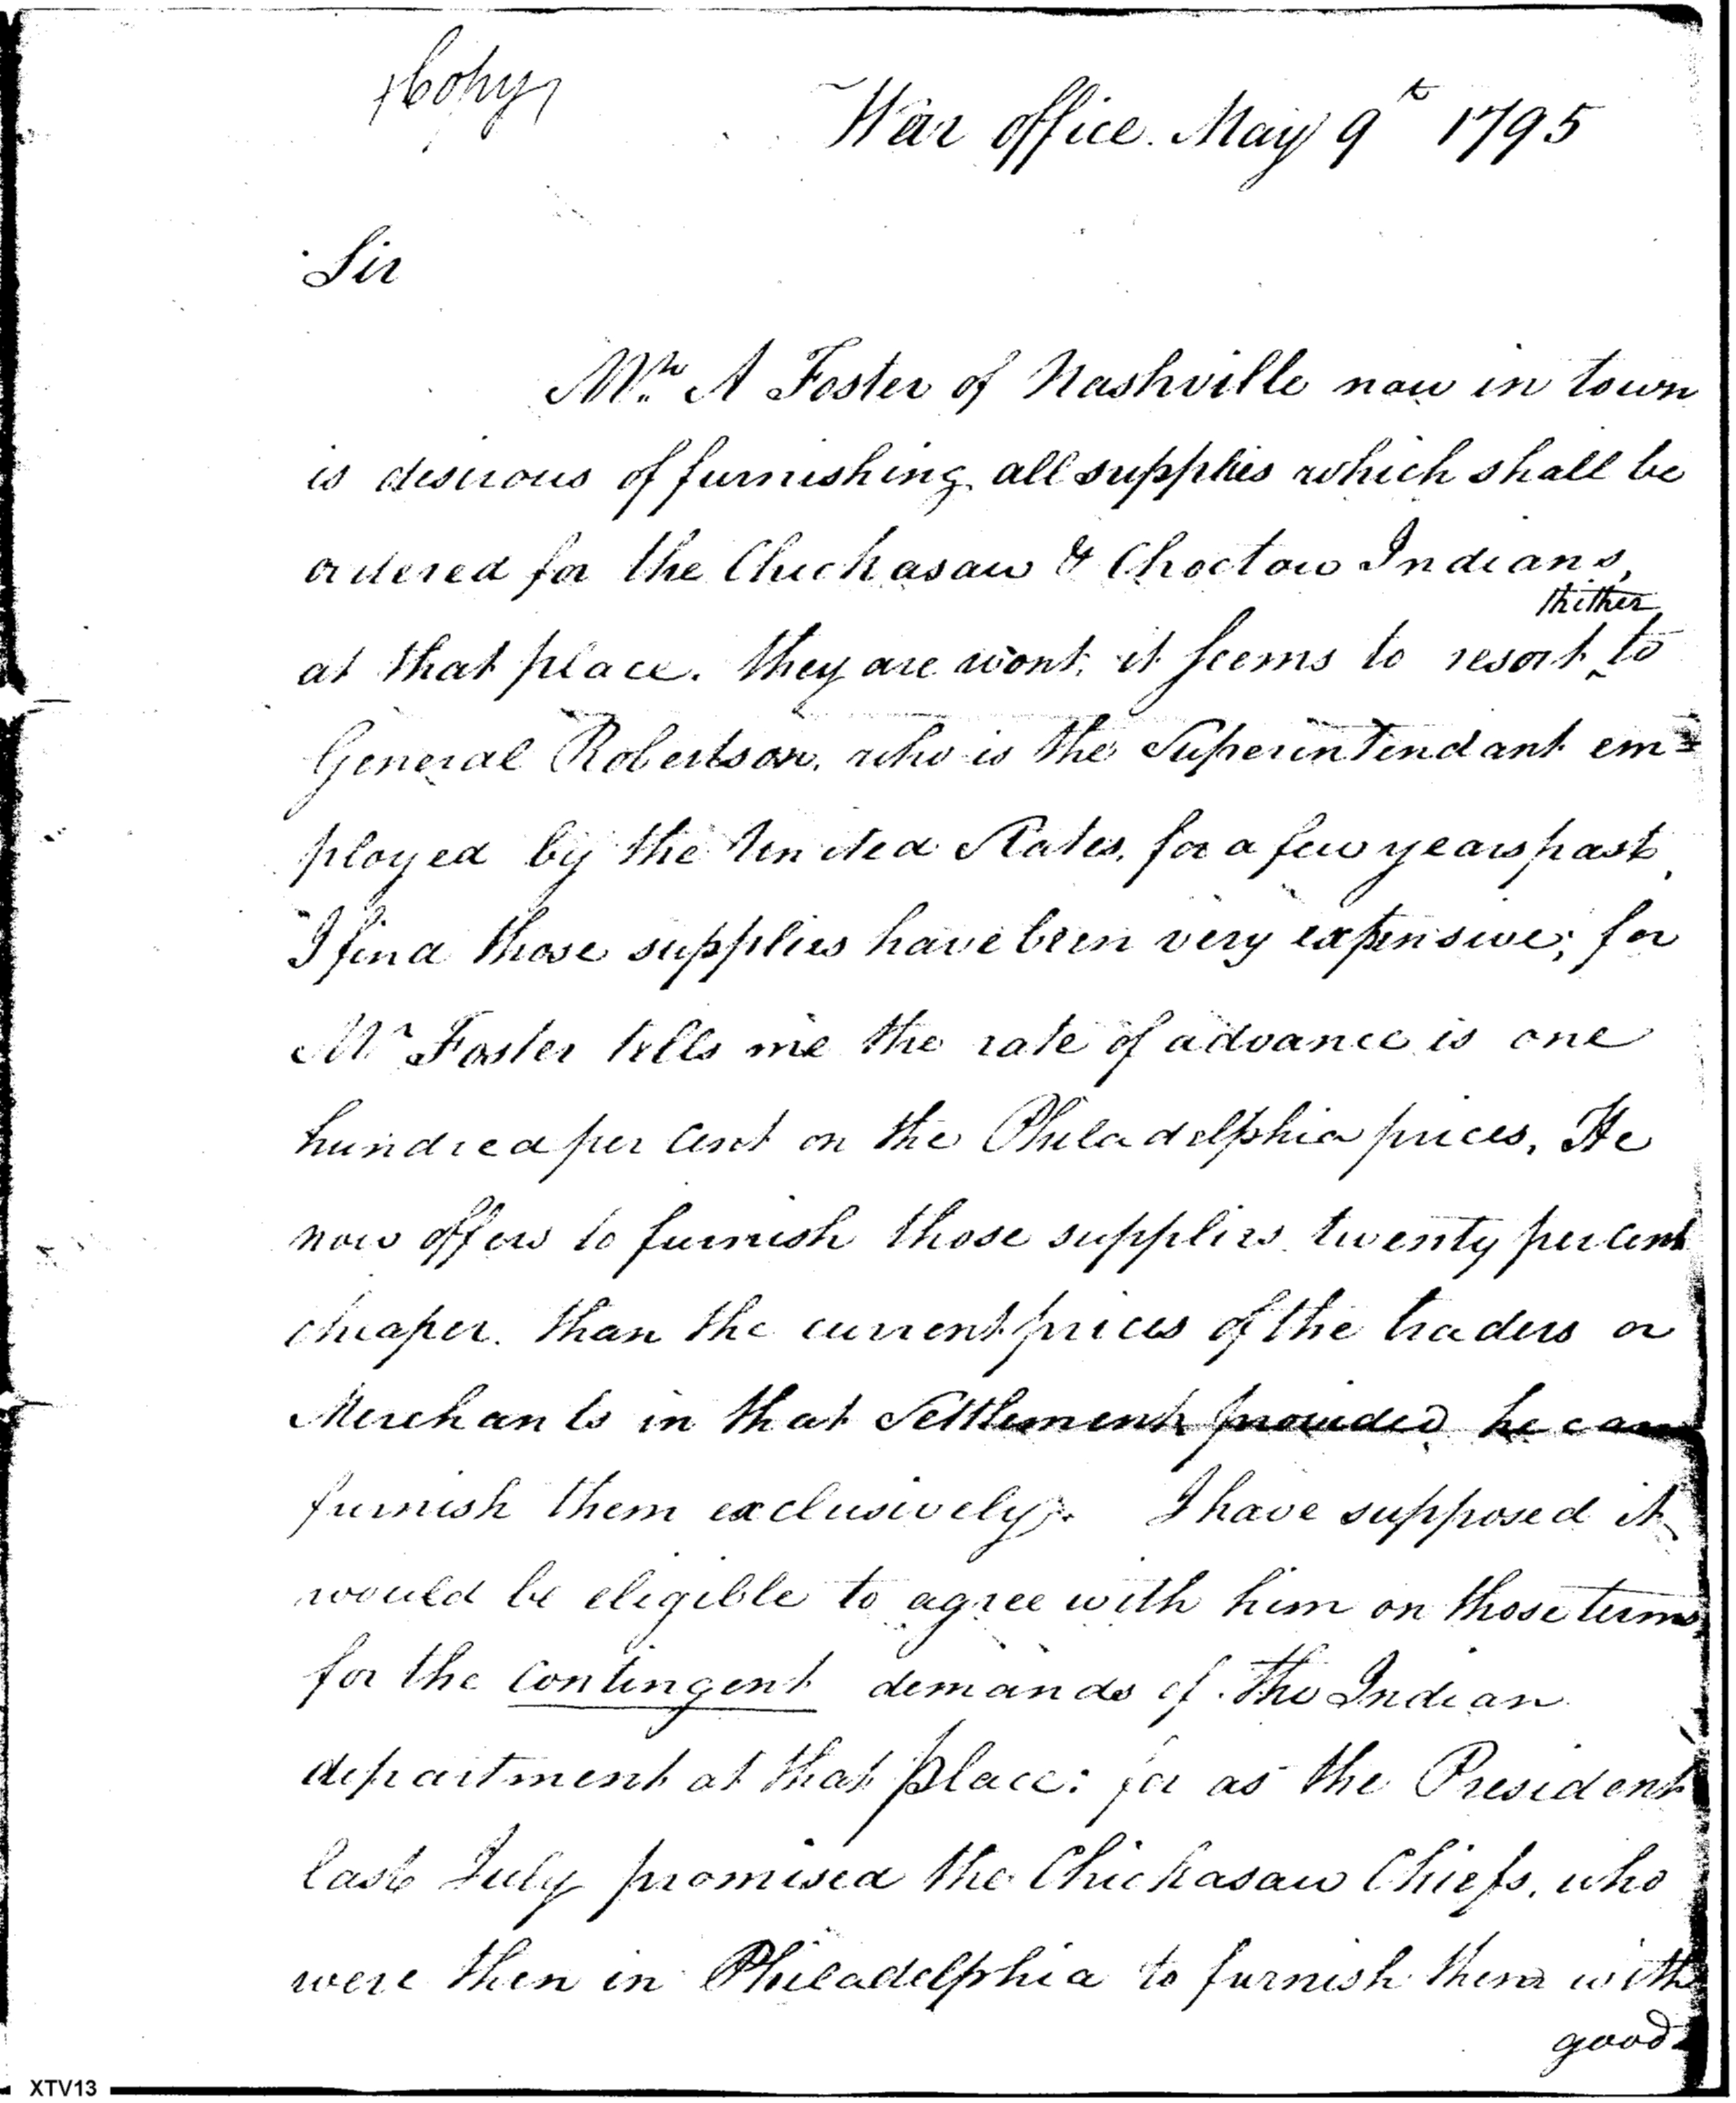 Copy
War office. May 9t 1795
Sir
Mr. A Foster of Nashville now in town
is desirous of furnishing all supplies which shall be
ordered for the Chickasaw & Choctaw Indians,
thither
at that place. they are wont, it seems to resort ^ to
General Robertson, who is the Superintendant em=
ployed by the United States, for a few years past,
I find those supplies have been very expensive; for
Mr Foster tells me the rate of advance is one
hundred per cent on the Philadelphia prices, He
now offers to furnish those supplies twenty per cent
cheaper. than the current prices of the traders or
Merchants in that Settlement provided he can
furnish them exclusively. I have supposed it
would be eligible to agree with him on those terms
for the contingent demands of the Indian
department at that place: for as the President
last July promised the Chickasaw Chiefs, who
were then in Philadelphia to furnish them with
goods
XTV13